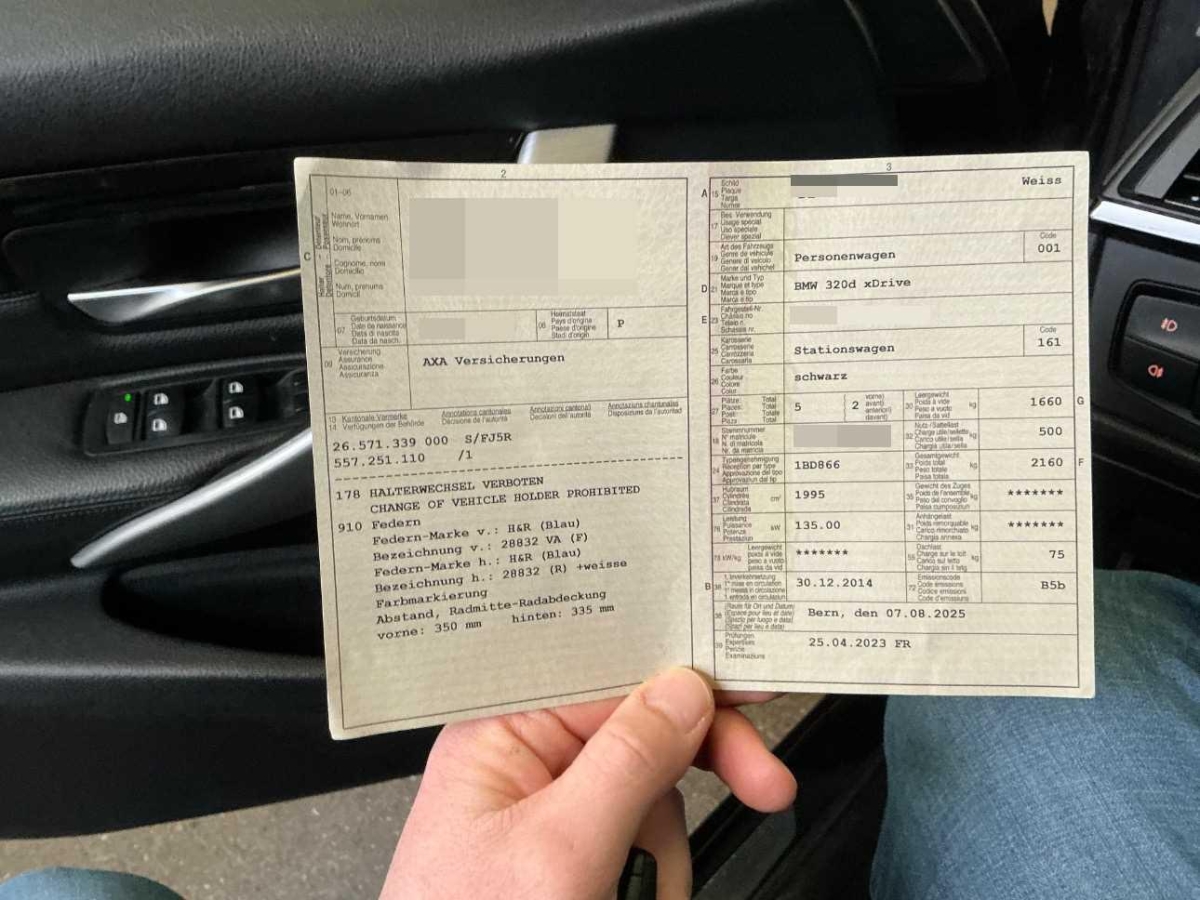 2
01-06
C
Halter
Name, Vornamen
Wohnort
Nom, prénoms
Domicile
Cognome, nomi
Domicilio
Num, prenums
Domicil
07
Geburtsdatum
Date de naissance
Data di nascita
Data da nasch.
06
Heimatstaat
Pays d'origine
Paese d'origine
Stadi d'origin
P
09
Versicherung
Assurance
Assicurazione
Assicuranza
AXA Versicherungen
13 Kantonale Vermerke
14 Verfügungen der Behörde
Annotations cantonales
Décisions de l'autorité
Annotazioni cantonali
Decisioni dell'autorità
Annotaziuns chantunalas
Disposiziuns da l'autoritad
26.571.339 000 S/FJ5R
557.251.110 /1
178 HALTERWECHSEL VERBOTEN
CHANGE OF VEHICLE HOLDER PROHIBITED
910 Federn
Federn-Marke v.: H&R (Blau)
Bezeichnung v.: 28832 VA (F)
Federn-Marke h.: H&R (Blau)
Bezeichnung h.: 28832 (R) +weisse
Farbmarkierung
Abstand, Radmitte-Radabdeckung
vorne: 350 mm hinten: 335 mm
3
A 15
Schild
Plaque
Targa
Numer
Weiss
17
Bes. Verwendung
Usage spécial
Uso speciale
Diever spezial
19
Art des Fahrzeugs
Genre de véhicule
Genere di veicolo
Gener dal vehichel
Personenwagen
Code
001
D 21
Marke und Typ
Marque et type
Marca e tipo
Marca e tip
BMW 320d xDrive
E 23
Fahrgestell-Nr.
Châssis no
Telaio n.
Schassis nr.
25
Karosserie
Carrosserie
Carrozzeria
Carossaria
Stationswagen
Code
161
26
Farbe
Couleur
Colore
Colur
schwarz
27
Plätze: Total
Places: Total
Posti: Totale
Plazs: Total
5
2
vorne)
avant)
anteriori)
davant)
30
Leergewicht
Poids à vide
Peso a vuoto
Paisa da vid
kg
1660
G
18
Stammnummer
N° matricule
N. di matricola
Nr. da matricla
32
Nutz-/Sattellast
Charge utile/sellette
Carico utile/sella
Chargia utila/sella
kg
500
24
Typengenehmigung
Réception par type
Approvazione del tipo
Approvaziun dal tip
1BD866
33
Gesamtgewicht
Poids total
Peso totale
Paisa totala
kg
2160
F
37
Hubraum
Cylindrée
Cilindrata
Cilindrada
cm³
1995
35
Gewicht des Zuges
Poids de l'ensemble
Peso del convoglio
Paisa cumposiziun
kg
*******
76
Leistung
Puissance
Potenza
Prestaziun
kW
135.00
31
Anhängelast
Poids remorquable
Carico rimorchiato
Chargia annexa
kg
*******
78 kW/kg
Leergewicht
poids à vide
peso a vuoto
paisa da vid
*******
55
Dachlast
Charge sur le toit
Carico sul tetto
Chargia sin il tetg
kg
75
B 36
1. Inverkehrsetzung
1re mise en circulation
1a messa in circolazione
1. entrada en circulaziun
30.12.2014
72
Emissionscode
Code émissions
Codice emissioni
Code d'emissiuns
B5b
38
(Raum für Ort und Datum)
(Espace pour lieu et date)
(Spazio per luogo e data)
(Spazi per lieu e data)
Bern, den 07.08.2025
39
Prüfungen
Expertises
Perizie
Examinaziuns
25.04.2023 FR